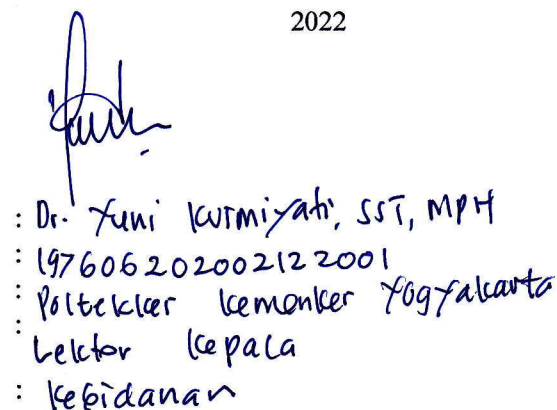 2022
: Dr. Yuni Kusmiyati, SST, MPH
: 197606202002122001
: Poltekkes Kemenkes Yogyakarta
: Lektor Kepala
: Kebidanan